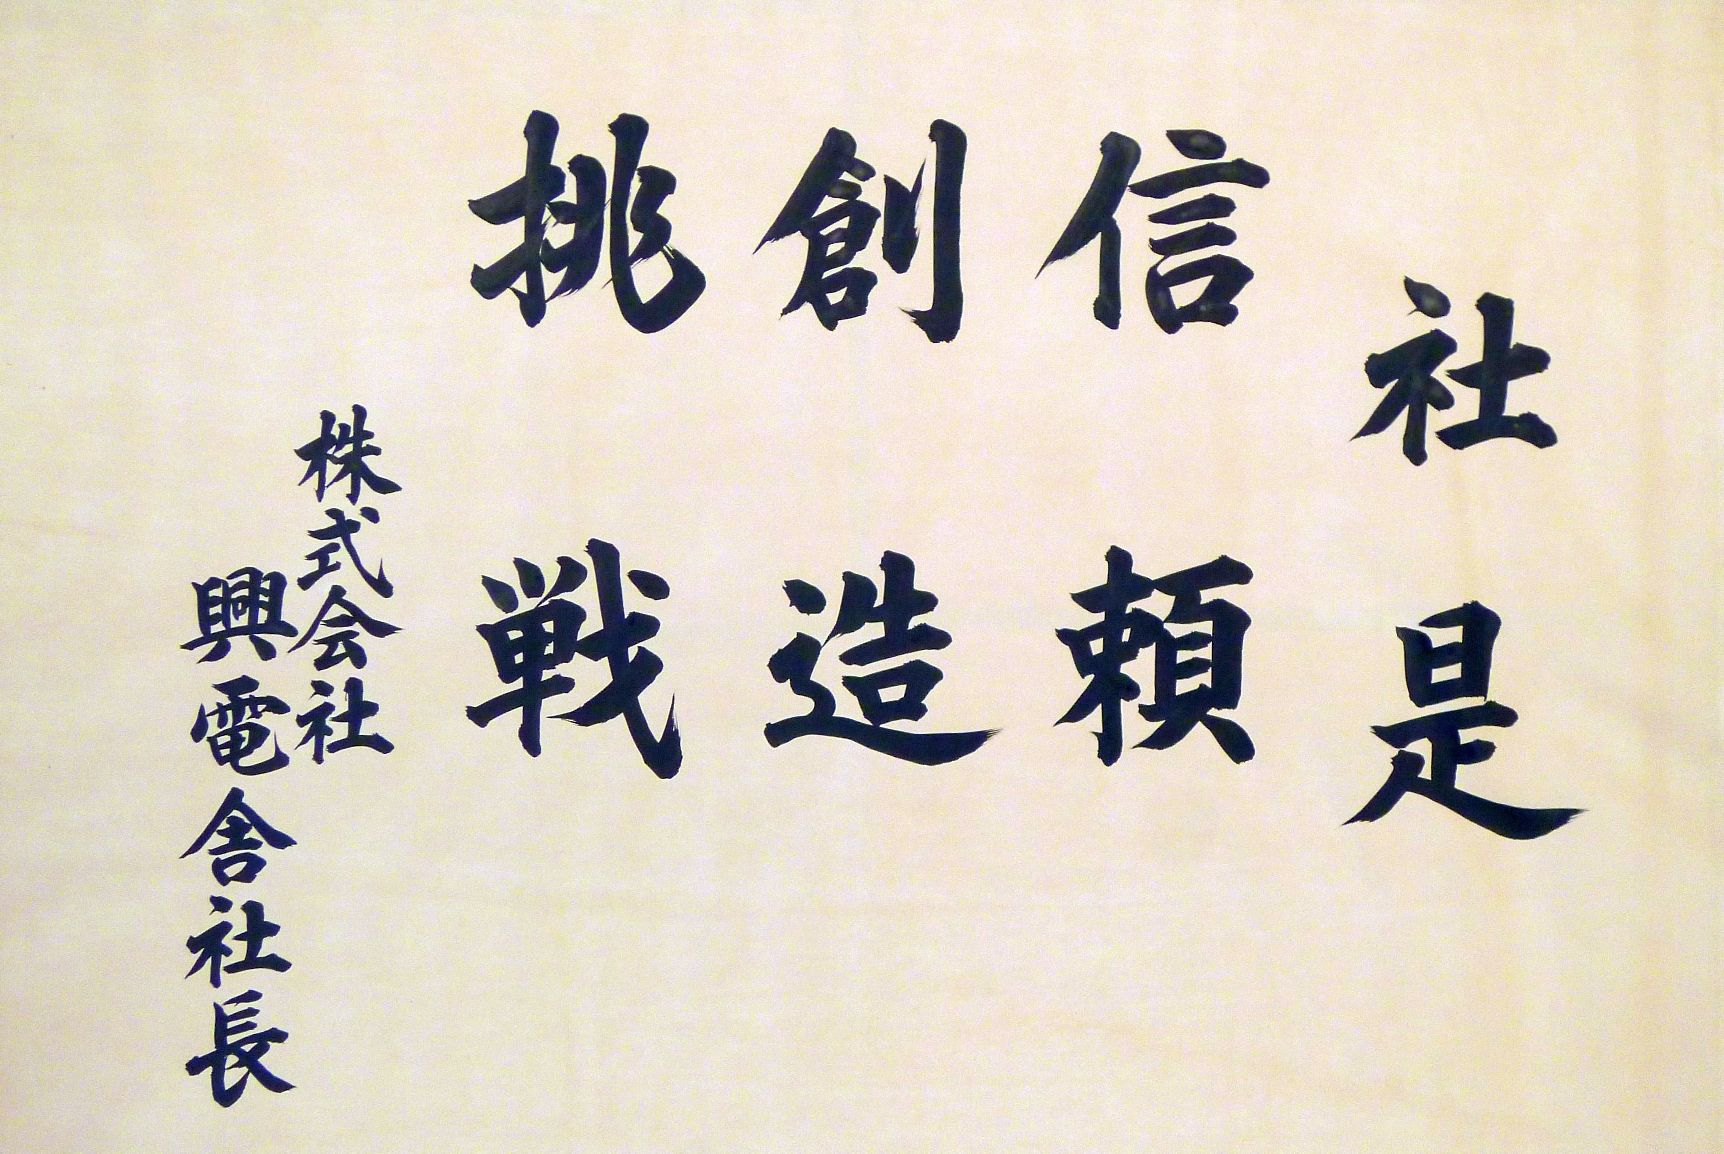 社是
信頼
創造
挑戦
株式会社
興電舎社長